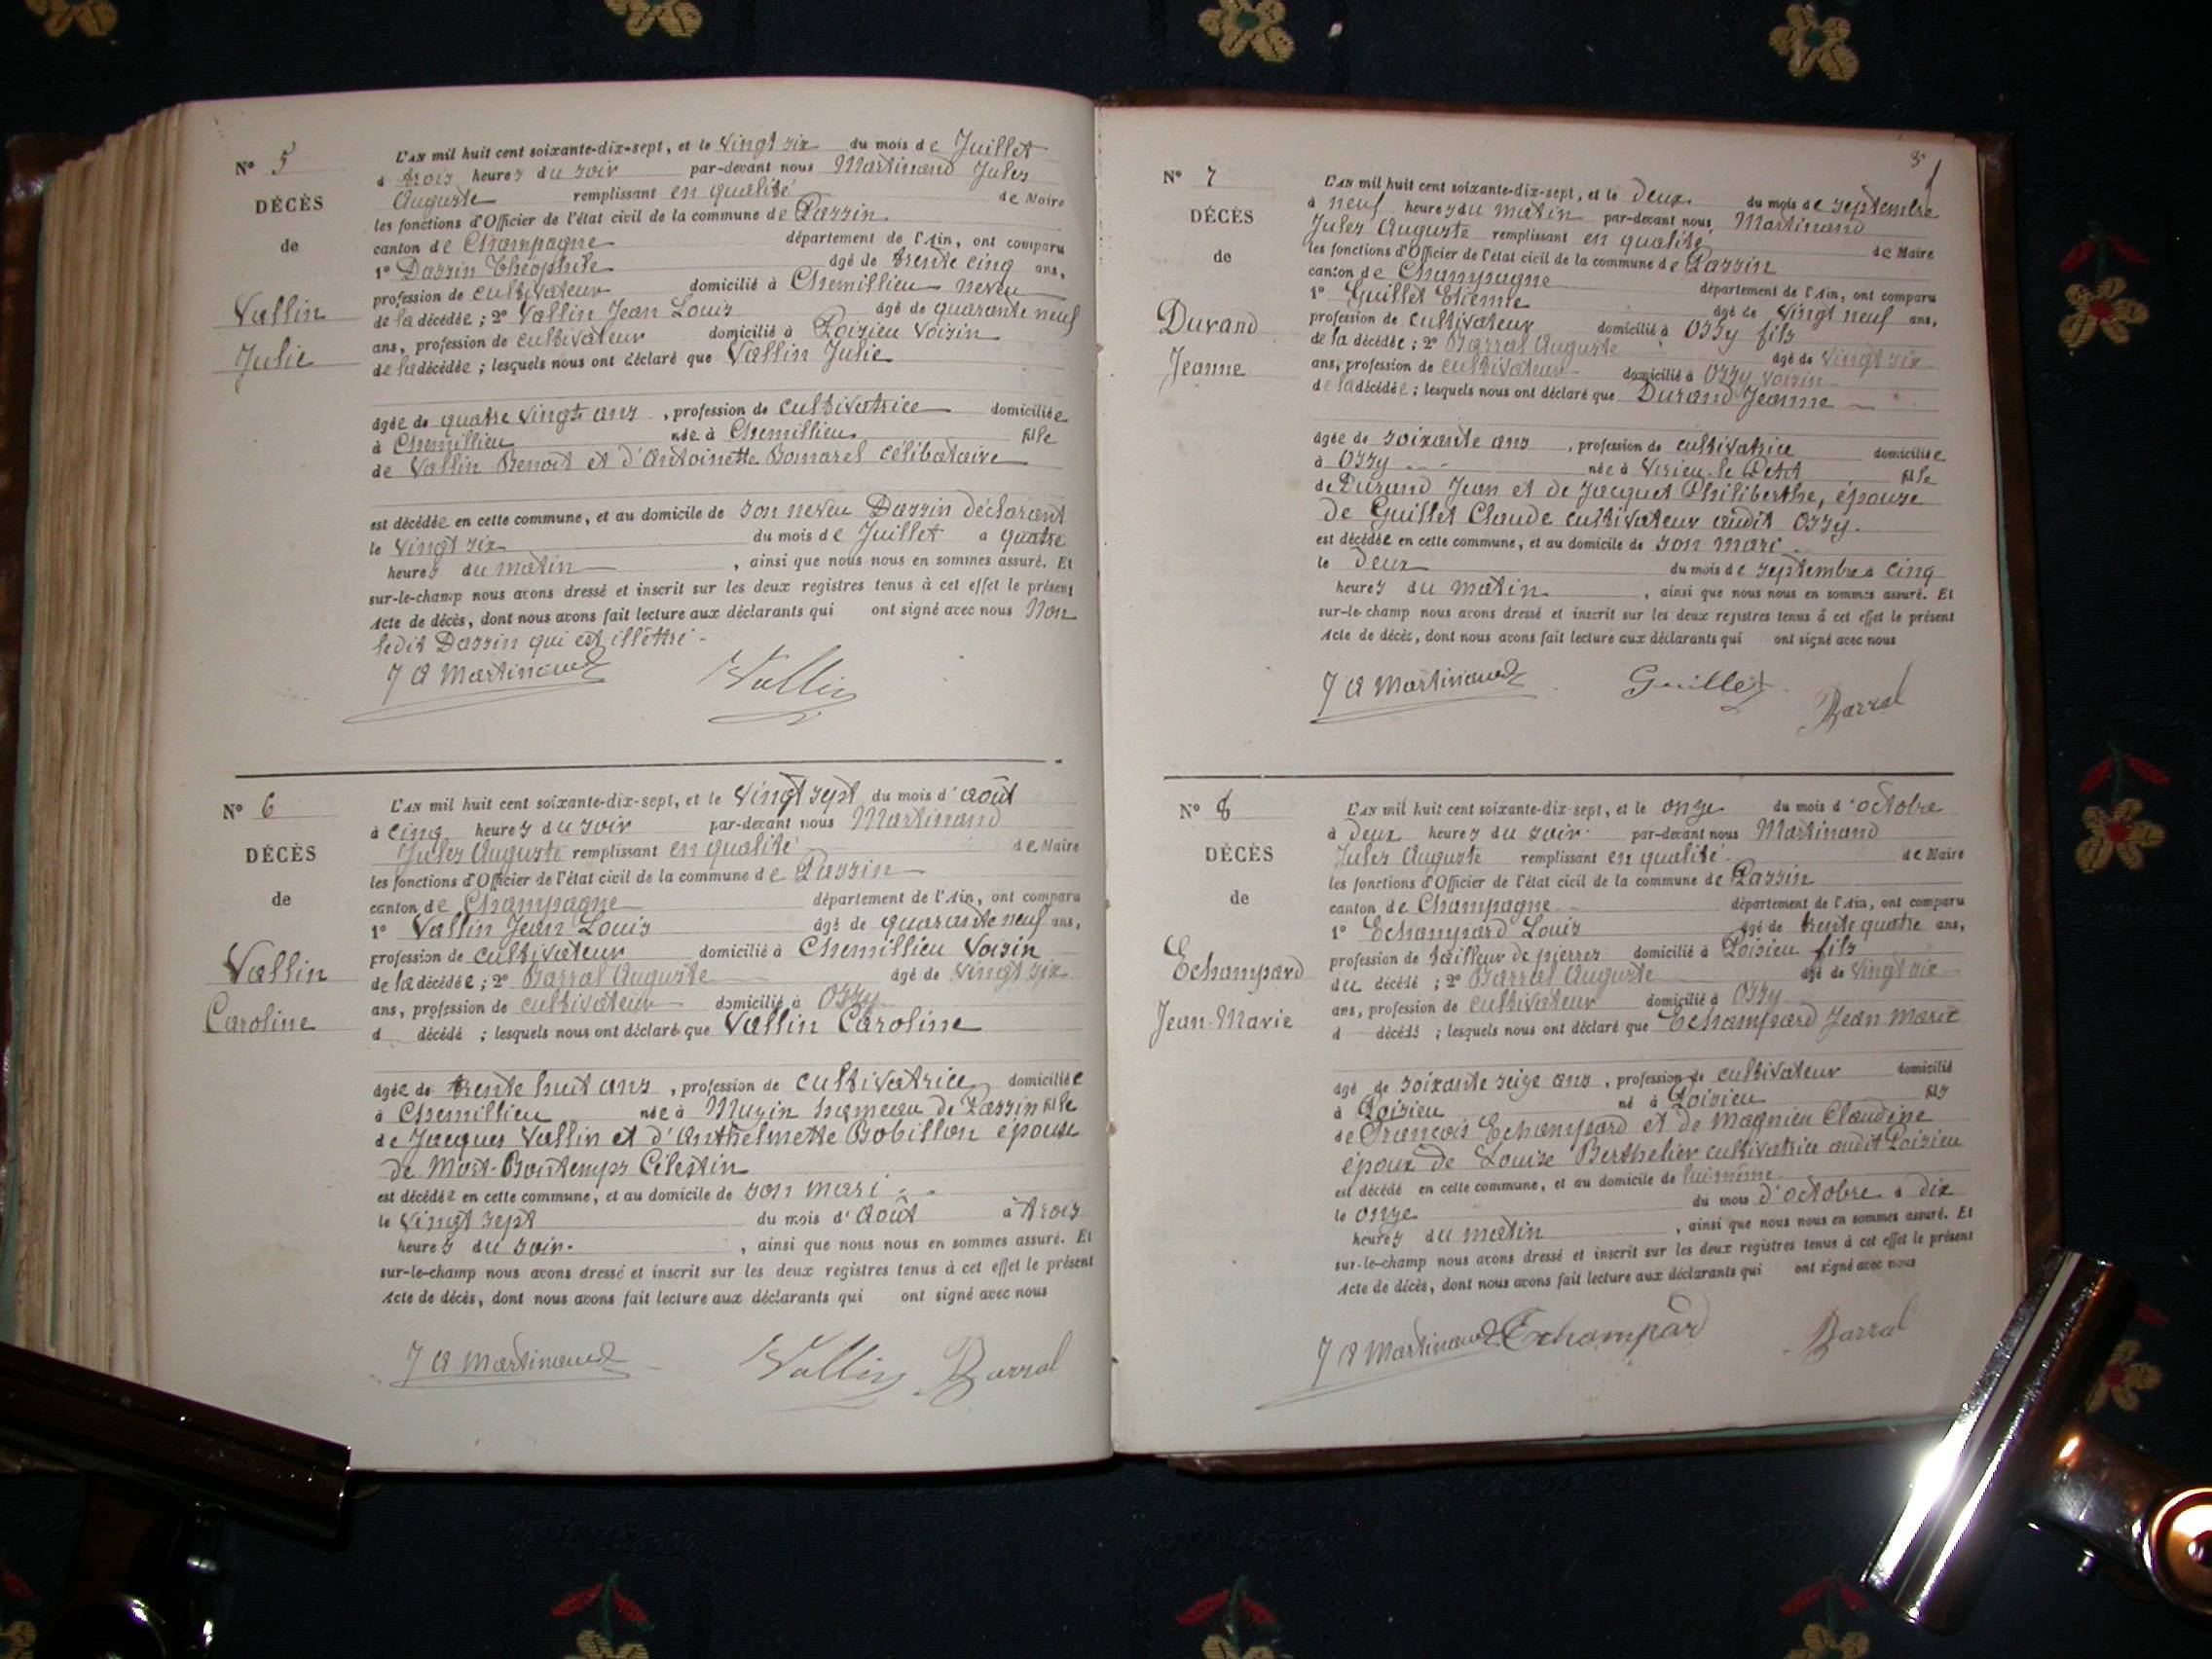 N° 5
DÉCÈS
de
Vallin
Julie
L'AN mil huit cent soixante-dix-sept, et le vingt six du mois de Juillet
à trois heures du soir par-devant nous Martinand Jules
Auguste remplissant en qualité de Maire
les fonctions d'Officier de l'état civil de la commune de Passin
canton de Champagne département de l'Ain, ont comparu
1° Dassin Théophile âgé de trente cinq ans,
profession de cultivateur domicilié à Chemillieu neveu
de la décédée ; 2° Vallin Jean Louis âgé de quarante neuf
ans, profession de cultivateur domicilié à Poisieu voisin
de la décédée ; lesquels nous ont déclaré que Vallin Julie
âgée de quatre vingts ans, profession de cultivatrice domiciliée
à Chemillieu née à Chemillieu fille
de Vallin Benoit et d'Antoinette Bomarel célibataire
est décédée en cette commune, et au domicile de son neveu Dassin déclarant
le vingt six du mois de Juillet à quatre
heures du matin, ainsi que nous nous en sommes assuré. Et
sur-le-champ nous avons dressé et inscrit sur les deux registres tenus à cet effet le présent
Acte de décès, dont nous avons fait lecture aux déclarants qui ont signé avec nous Non
ledit Dassin qui est illettré -
J A Martinand Vallin
N° 6
DÉCÈS
de
Vallin
Caroline
L'AN mil huit cent soixante-dix-sept, et le vingt sept du mois d'août
à cinq heures du soir par-devant nous Martinand
Jules Auguste remplissant en qualité de Maire
les fonctions d'Officier de l'état civil de la commune de Passin
canton de Champagne département de l'Ain, ont comparu
1° Vallin Jean Louis âgé de quarante neuf ans,
profession de cultivateur domicilié à Chemillieu voisin
de la décédée ; 2° Barral Auguste âgé de vingt six
ans, profession de cultivateur domicilié à Ossy
d décédé ; lesquels nous ont déclaré que Vallin Caroline
âgée de trente huit ans, profession de cultivatrice domiciliée
à Chemillieu née à Muzin hameau de Passin fille
de Jacques Vallin et d'Anthelmette Bobillon épouse
de Mort-Bontemps Célestin
est décédée en cette commune, et au domicile de son mari
le vingt sept du mois d'août à trois
heures du soir, ainsi que nous nous en sommes assuré. Et
sur-le-champ nous avons dressé et inscrit sur les deux registres tenus à cet effet le présent
Acte de décès, dont nous avons fait lecture aux déclarants qui ont signé avec nous
J A Martinand Vallin Barral
N° 7
DÉCÈS
de
Durand
Jeanne
L'AN mil huit cent soixante-dix-sept, et le deux du mois de septembre
à neuf heures du matin par-devant nous Martinand
Jules Auguste remplissant en qualité de Maire
les fonctions d'Officier de l'état civil de la commune de Passin
canton de Champagne département de l'Ain, ont comparu
1° Guillet Etienne âgé de vingt neuf ans,
profession de cultivateur domicilié à Ossy fils
de la décédée ; 2° Barral Auguste âgé de vingt six
ans, profession de cultivateur domicilié à Ossy voisin
de la décédée ; lesquels nous ont déclaré que Durand Jeanne
âgée de soixante ans, profession de cultivatrice domiciliée
à Ossy née à Virieu le Petit fille
de Durand Jean et de Jacquet Philiberthe, épouse
de Guillet Claude cultivateur audit Ossy.
est décédée en cette commune, et au domicile de son mari
le deux du mois de septembre à cinq
heures du matin, ainsi que nous nous en sommes assuré. Et
sur-le-champ nous avons dressé et inscrit sur les deux registres tenus à cet effet le présent
Acte de décès, dont nous avons fait lecture aux déclarants qui ont signé avec nous
J A Martinand Guillet Barral
N° 8
DÉCÈS
de
Echampard
Jean-Marie
L'AN mil huit cent soixante-dix-sept, et le onze du mois d'octobre
à deux heures du soir par-devant nous Martinand
Jules Auguste remplissant en qualité de Maire
les fonctions d'Officier de l'état civil de la commune de Passin
canton de Champagne département de l'Ain, ont comparu
1° Echampard Louis âgé de trente quatre ans,
profession de tailleur de pierres domicilié à Poisieu fils
du décédé ; 2° Barral Auguste âgé de vingt six
ans, profession de cultivateur domicilié à Ossy
d décédé ; lesquels nous ont déclaré que Echampard Jean Marie
âgé de soixante seize ans, profession de cultivateur domicilié
à Poisieu né à Poisieu fils
de François Echampard et de Magnieu Claudine
époux de Louise Berthelier cultivatrice audit Poisieu
est décédé en cette commune, et au domicile de lui-même
le onze du mois d'octobre à dix
heures du matin, ainsi que nous nous en sommes assuré. Et
sur-le-champ nous avons dressé et inscrit sur les deux registres tenus à cet effet le présent
Acte de décès, dont nous avons fait lecture aux déclarants qui ont signé avec nous
J A Martinand Echampard Barral